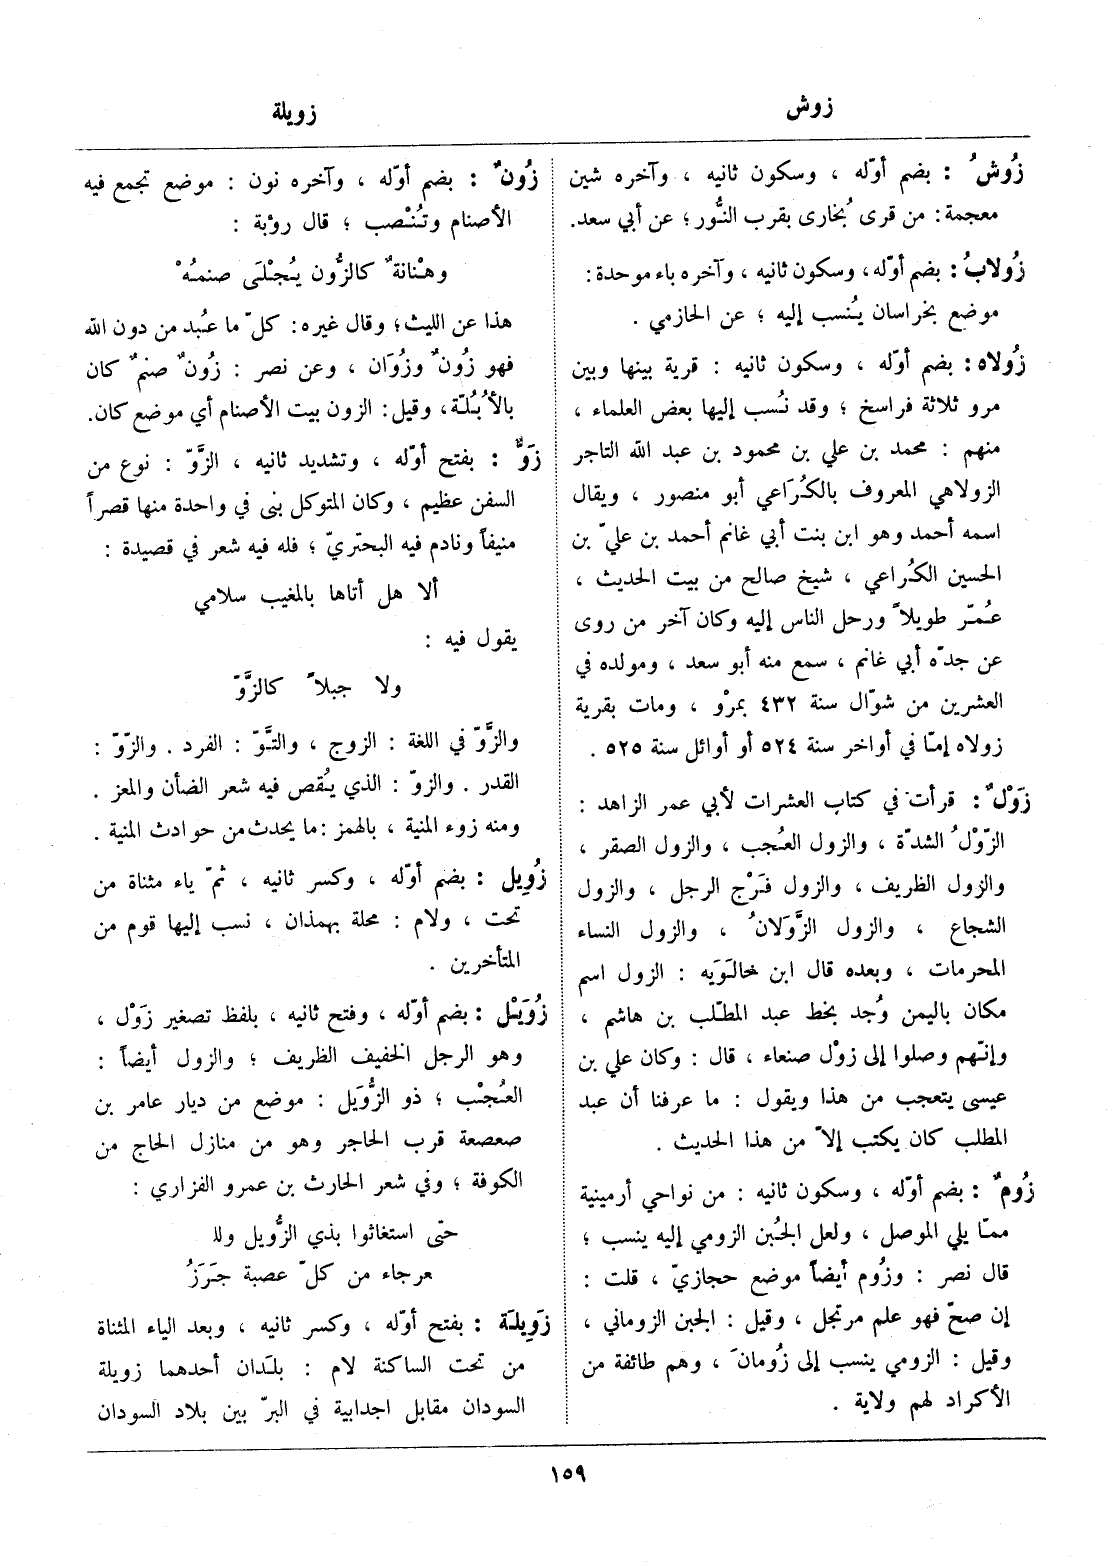 زوش
زويلة
زُوشُ : بضم أوّله ، وسكون ثانيه ، وآخره شين
معجمة : من قرى بُخارى بقرب النُّور ؛ عن أبي سعد .
زُولابُ : بضم أوّله ، وسكون ثانيه ، وآخره باء موحدة :
موضع بخراسان يُنسب إليه ؛ عن الحازمي .
زُولاه : بضم أوّله ، وسكون ثانيه : قرية بينها وبين
مرو ثلاثة فراسخ ؛ وقد نُسب إليها بعض العلماء ،
منهم : محمد بن علي بن محمود بن عبد الله التاجر
الزولاهي المعروف بالكُرَاعي أبو منصور ، ويقال
اسمه أحمد وهو ابن بنت أبي غانم أحمد بن عليّ بن
الحسين الكُراعي ، شيخ صالح من بيت الحديث ،
عُمّر طويلاً ورحل الناس إليه وكان آخر من روى
عن جدّه أبي غانم ، سمع منه أبو سعد ، ومولده في
العشرين من شوّال سنة ٤٣٢ بمرْو ، ومات بقرية
زولاه إمّا في أواخر سنة ٥٢٤ أو أوائل سنة ٥٢٥ .
زَوْلٌ : قرأت في كتاب العشرات لأبي عمر الزاهد :
الزّوْلُ الشدّة ، والزول العُجب ، والزول الصقر ،
والزول الظريف ، والزول فَرْج الرجل ، والزول
الشجاع ، والزول الزَّوَلانُ ، والزول النساء
المحرمات ، وبعده قال ابن خالَوَيه : الزول اسم
مكان باليمن وُجد بخط عبد المطّلب بن هاشم ،
وإنّهم وصلوا إلى زوْل صنعاء ، قال : وكان علي بن
عيسى يتعجب من هذا ويقول : ما عرفنا أن عبد
المطلب كان يكتب إلاّ من هذا الحديث .
زُومٌ : بضم أوّله ، وسكون ثانيه : من نواحي أرمينية
ممّا يلي الموصل ، ولعل الجُبن الزومي إليه ينسب ؛
قال نصر : وزُوم أيضاً موضع حجازيّ ، قلت :
إن صحّ فهو علم مرتجل ، وقيل : الجبن الزوماني ،
وقيل : الزومي ينسب إلى زُومانَ ، وهم طائفة من
الأكراد لهم ولاية .
زُونٌ : بضم أوّله ، وآخره نون : موضع تجمع فيه
الأصنام وتُنْصب ؛ قال رؤبة :
وهْنانةٌ كالزُّون يُجْلَى صنمُهْ
هذا عن الليث ؛ وقال غيره : كلّ ما عُبد من دون الله
فهو زُونٌ وزُوَان ، وعن نصر : زُونٌ صنمٌ كان
بالأُبُلّة ، وقيل : الزون بيت الأصنام أي موضع كان .
زَوٌّ : بفتح أوّله ، وتشديد ثانيه ، الزَّوّ : نوع من
السفن عظيم ، وكان المتوكل بنى في واحدة منها قصراً
منيفاً ونادم فيه البحتريّ ؛ فله فيه شعر في قصيدة :
ألا هل أتاها بالمغيب سلامي
يقول فيه :
ولا جبلاً كالزَّوّ
والزَّوّ في اللغة : الزوج ، والتَّوّ : الفرد . والزّوّ :
القدر . والزوّ : الذي يُقص فيه شعر الضأن والمعز .
ومنه زوء المنية ، بالهمز : ما يحدث من حوادث المنية .
زُوِيل : بضم أوّله ، وكسر ثانيه ، ثمّ ياء مثناة من
تحت ، ولام : محلة بهمذان ، نسب إليها قوم من
المتأخرين .
زُوَيْل : بضم أوّله ، وفتح ثانيه ، بلفظ تصغير زَوْل ،
وهو الرجل الخفيف الظريف ؛ والزول أيضاً :
العُجْب ؛ ذو الزُّوَيل : موضع من ديار عامر بن
صعصعة قرب الحاجر وهو من منازل الحاج من
الكوفة ؛ وفي شعر الحارث بن عمرو الفزاري :
حتى استغاثوا بذي الزُّويل وللـ
عرجاء من كلّ عصبة جَرَزُ
زَوِيلَة : بفتح أوّله ، وكسر ثانيه ، وبعد الياء المثناة
من تحت الساكنة لام : بلَدان أحدهما زويلة
السودان مقابل اجدابية في البرّ بين بلاد السودان
١٥٩